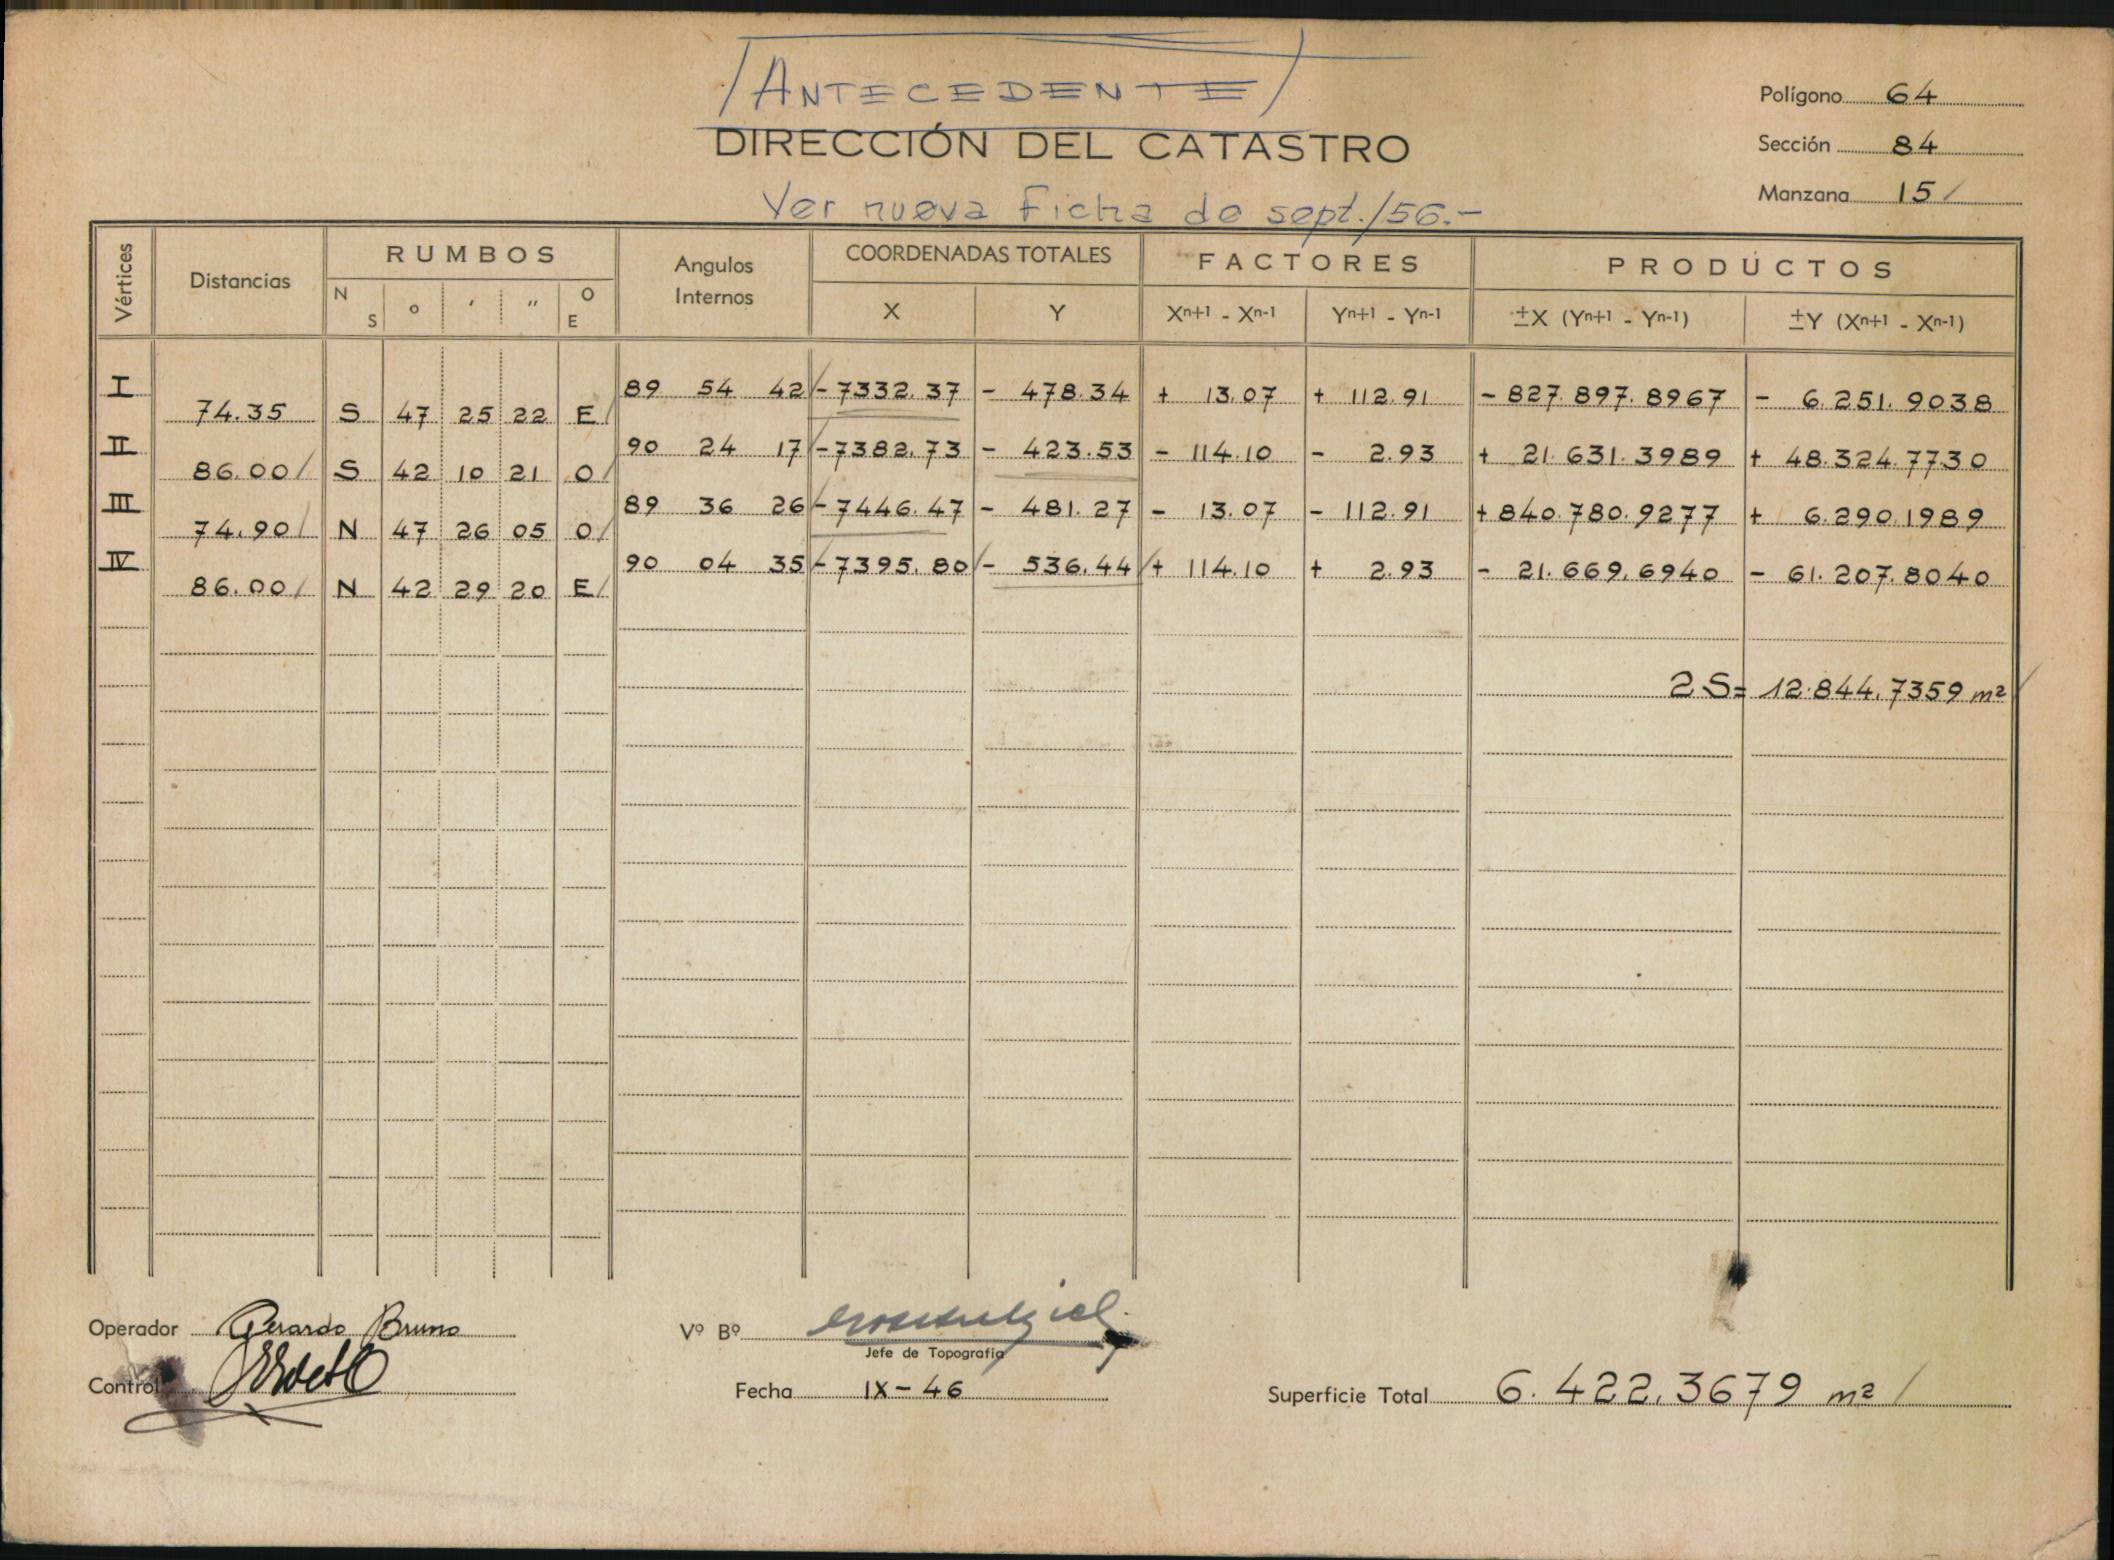 ANTECEDENTE
DIRECCIÓN DEL CATASTRO
Ver nueva ficha de sept./56.-
Polígono 64
Sección 84
Manzana 15/
Vértices Distancias RUMBOS Angulos Internos COORDENADAS TOTALES FACTORES PRODUCTOS
N S ° ' " O E X Y Xn+1 - Xn-1 Yn+1 - Yn-1 ±X (Yn+1 - Yn-1) ±Y (Xn+1 - Xn-1)
I 89 54 42 -7332.37 - 478.34 + 13.07 + 112.91 - 827.897.8967 - 6.251.9038
74.35 S 47 25 22 E/
II 90 24 17 -7382.73 - 423.53 - 114.10 - 2.93 + 21.631.3989 + 48.324.7730
86.00/ S 42 10 21 O/
III 89 36 26 -7446.47 - 481.27 - 13.07 - 112.91 + 840.780.9277 + 6.290.1989
74.90/ N 47 26 05 O/
IV 90 04 35 -7395.80/ - 536.44/ + 114.10 + 2.93 - 21.669.6940 - 61.207.8040
86.00/ N 42 29 20 E/
2S= 12.844.7359 m²/
Operador Gerardo Bruno
Vº Bº
Jefe de Topografia
Control
Fecha IX-46
Superficie Total 6.422.3679 m²/